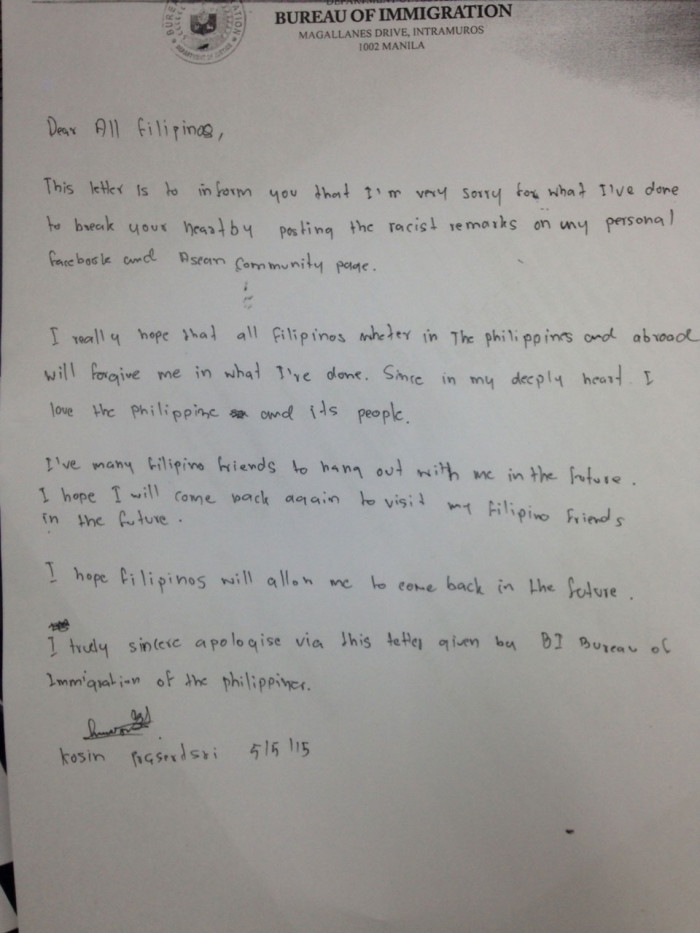 BUREAU OF IMMIGRATION
MAGALLANES DRIVE, INTRAMUROS
1002 MANILA
Dear All Filipinos,
This letter is to inform you that I'm very sorry for what I've done
to break your heart by posting the racist remarks on my personal
facebook and Asean Community page.
I really hope that all Filipinos wheter in The philippines and abroad
will forgive me in what I've done. Since in my deeply heart. I
love the philippine and its people.
I've many filipino friends to hang out with me in the future.
I hope I will come back again to visit my Filipino Friends
in the future.
I hope filipinos will allow me to come back in the future.
I truly sincere apologise via this letter given by BI Bureau of
Immigration of the philippines.
Kosin Prasertsri 5/5/15